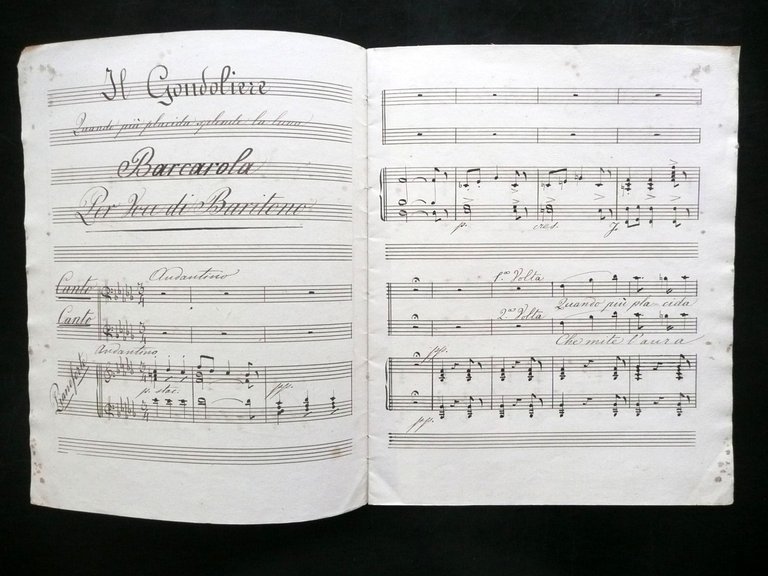 Il Gondoliere
Quando più placida splende la luna
Barcarola
Per Voci di Baritono
Andantino
Canto
Canto
Andantino
Pianforte
p. stac.
pp.
p. cres f
1.ma Volta
Quando più pla-cida
2.da Volta
Che mite l'aura
pp.
pp.